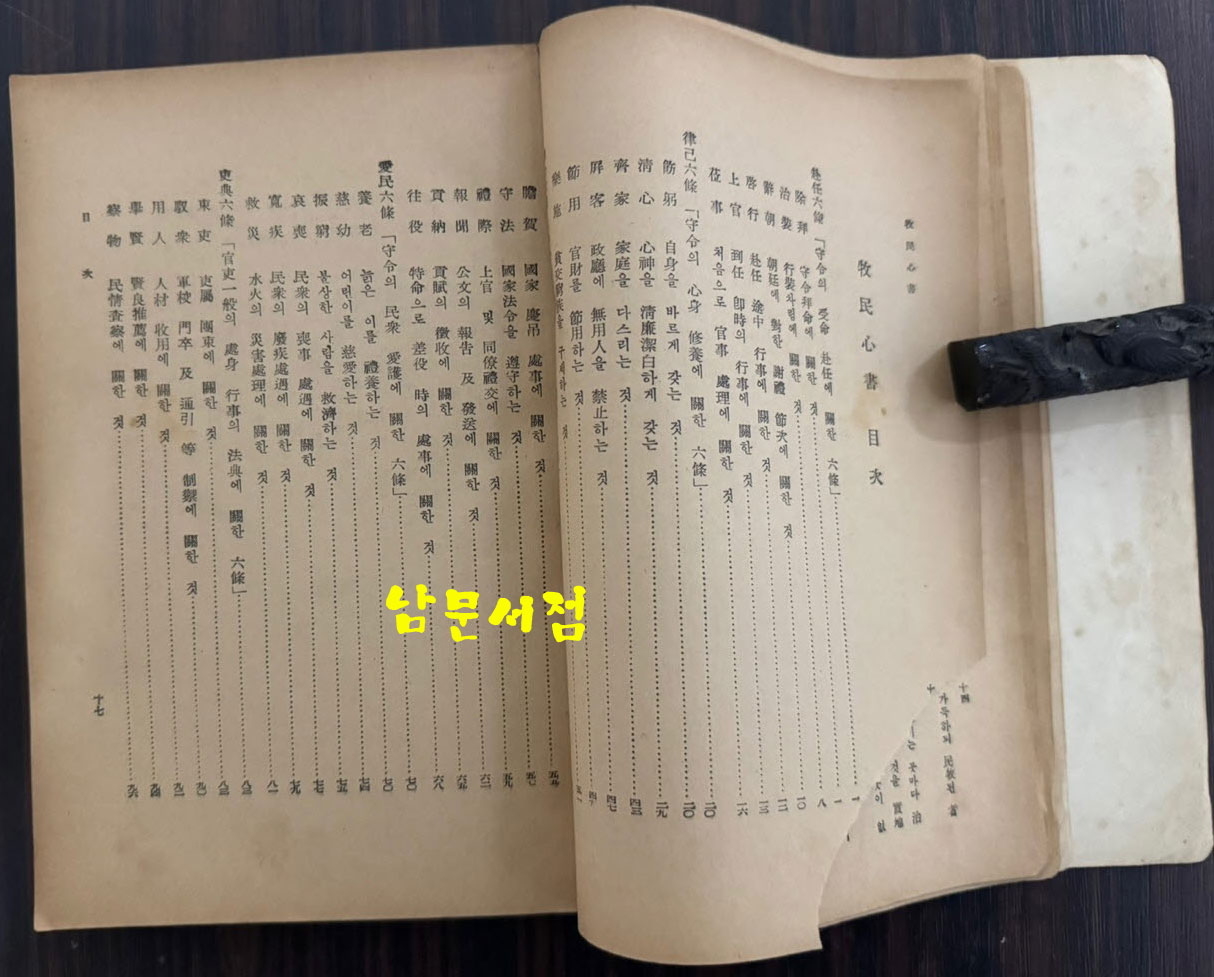 牧民心書
牧民心書目次
赴任六條「守令의 受命 赴任에 關한 六條」 一
除拜 守令拜命에 關한 것 一
治裝 行裝차림에 關한 것 八
辭朝 朝廷에 對한 謝禮 節次에 關한 것 一〇
啓行 赴任 途中 行事에 關한 것 一二
上官 到任 卽時의 行事에 關한 것 一三
莅事 처음으로 官事 處理에 關한 것 一六
律己六條「守令의 心身 修養에 關한 六條」 二〇
飭躬 自身을 바르게 갖는 것 二〇
淸心 心神을 淸廉潔白하게 갖는 것 二九
齊家 家庭을 다스리는 것 四三
屛客 政廳에 無用人을 禁止하는 것 四七
節用 官財를 節用하는 것
樂施 貧交窮族을 구제하는 것
瞻賀 國家 慶吊 處事에 關한 것
守法 國家法令을 遵守하는 것 五九
禮際 上官 및 同僚禮交에 關한 것 六二
報聞 公文의 報告 及 發送에 關한 것
貢納 貢賦의 徵收에 關한 것 六八
往役 特命으로 差役 時의 處事에 關한 것 七〇
愛民六條「守令의 民衆 愛護에 關한 六條」 七〇
養老 늙은 이를 禮養하는 것
慈幼 어린이를 慈愛하는 것
振窮 불상한 사람을 救濟하는 것
哀喪 民衆의 喪事 處遇에 關한 것
寬疾 民衆의 廢疾處遇에 關한 것 七九
救災 水火의 災害處理에 關한 것 八一
吏典六條「官吏一般의 處身 行事의 法典에 關한 六條」 八三
束吏 吏屬 團束에 關한 것 八三
馭衆 軍校 門卒 及 通引 等 制禦에 關한 것 九〇
用人 人材 收用에 關한 것 九二
擧賢 賢良推薦에 關한 것 九四
察物 民情査察에 關한 것 九六
目次
十七
十四
가득하며
것을
남문서점